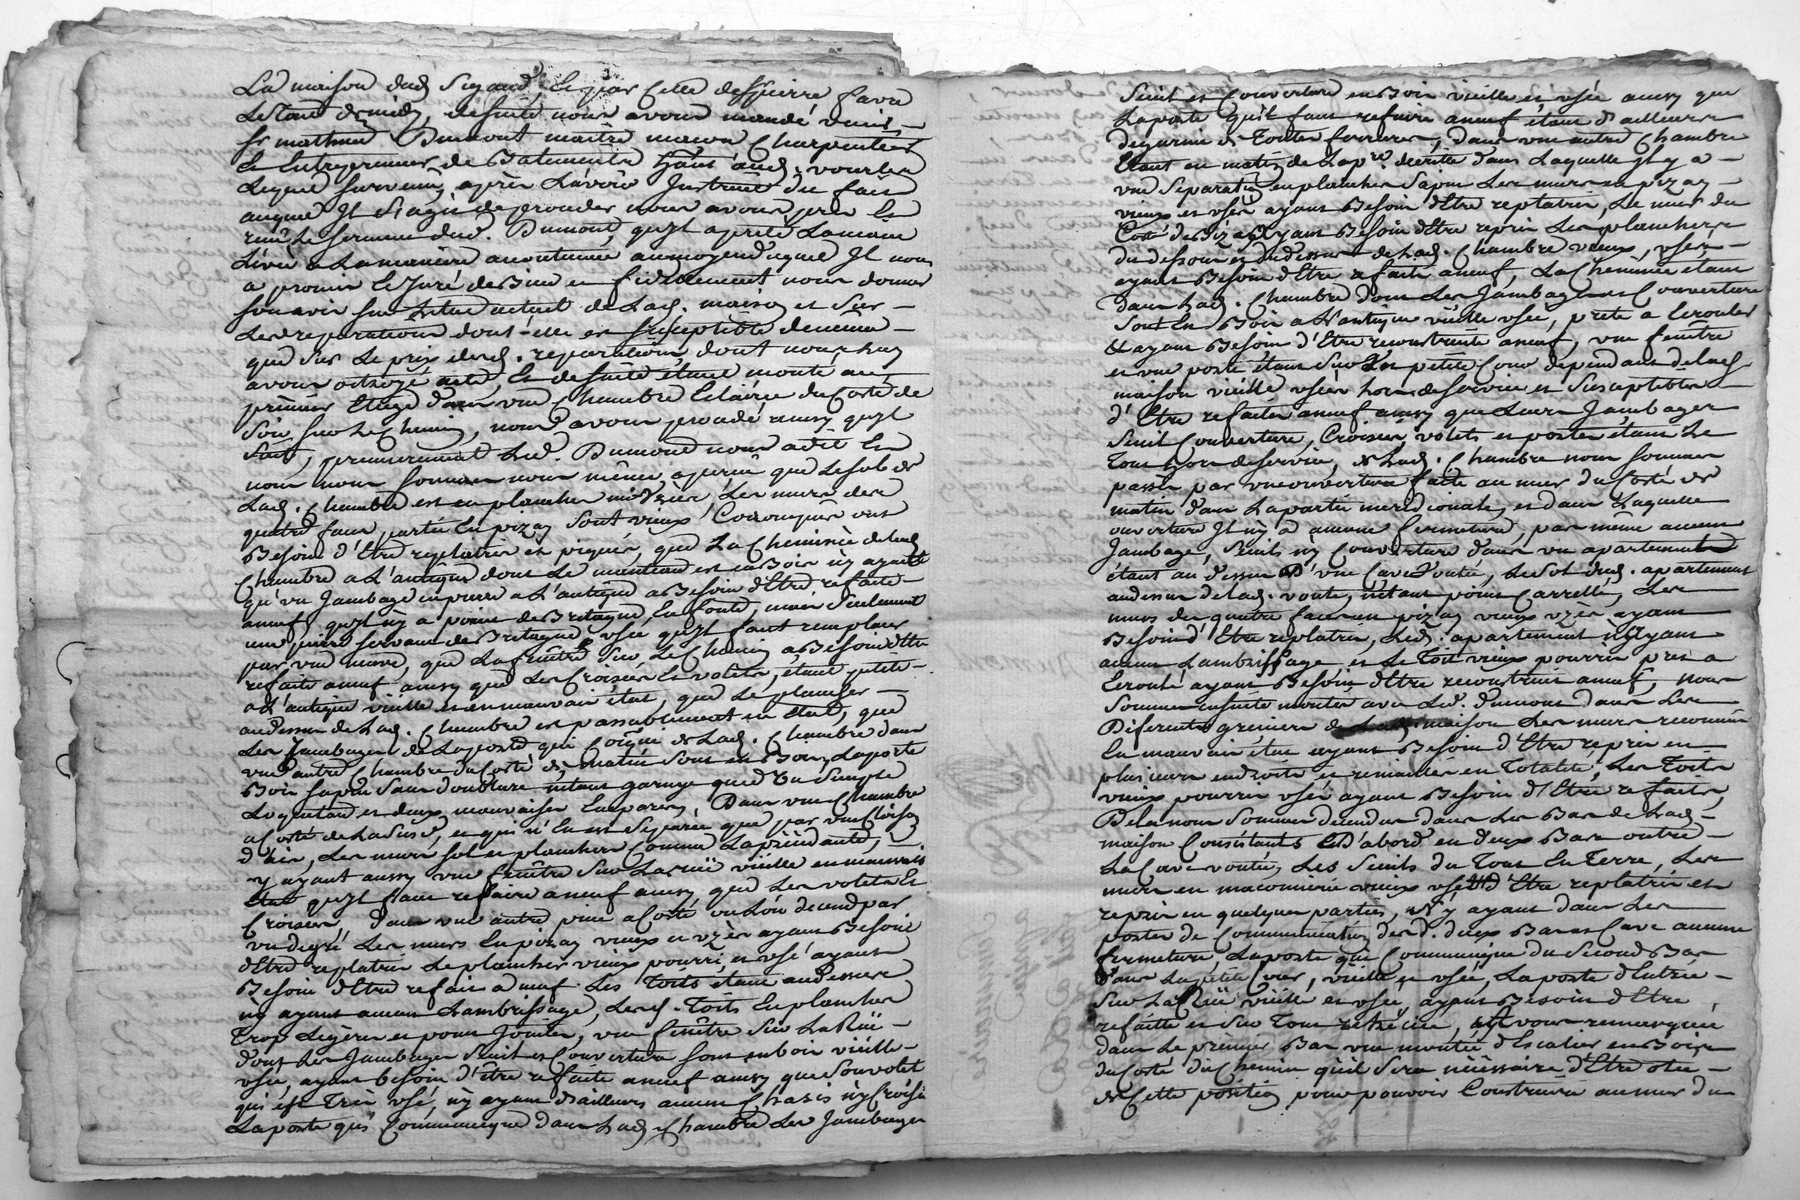 La maison dud. Sigaud, Et par Celle de pierre favre
Le tout de midy, desuite nous avons mandé venir
sr mathieu Dumont maitre macon Charpentier
Et Entrepreneur de Batiments hâbt aud. vourles
Lequel survenu, après L'avoir Instruit du fait
auquel Il s'agit de proceder nous avons pris Et
reçu Le serment dud. Dumont, qu'il a prêté La main
Levée a La maniere accoutumée au moyen duquel Il nous
a promis Et Juré de Bien et fidellement nous donner
son avis sur L'etat actuel de Lad. maison et sur
Les reparations dont elle est susceptible de même
que sur Le prix desd. reparations, dont nous luy
avons octroyé acte, Et desuite étant monté au
premier Etage dans une Chambre Eclairée du Costé de
soir sur Le Chemin, nous avons procedé ainsy qu'il
suit, premierement Led. Dumont nous a dit Et
nous nous sommes nous même aperçu que Le sol de
Lad. Chambre est en plancher my usés, Les murs des
quatre faces partie En pizay sont vieux Corrompus ont
Besoin d'Etre replatris et piqués, que La Cheminée de lad.
Chambre a L'antique dont Le manteau est en Bois n'y ayant
qu'un Jambage en pierre a L'antique a Besoin d'Etre refaite
aneuf, qu'il n'y a point de Bretagne En fonte, mais seulement
une pierre servant de Bretagne usée qu'il faut remplacer
par une neuve, que La fenêtre sur Le Chemin a Besoin d'Etre
refaite aneuf ainsy que Les Croisées Et volets, étant petite
a L'antique vieille et en mauvais état, que Le plancher
audessus de Lad. Chambre est passablement en état, que
Les Jambages de La porte qui Communique de Lad. Chambre dans
une autre Chambre du Costé de matin sont en Bon, La porte
Bois sapin sans doublure n'étant garnye que d'Un simple
Loquetau et deux mauvaises Emparres, Dans une Chambre
a Costé de La susd, et qui n'En est separée que par une Cloison
d'ais, Les murs sol et planchers Comme La précédante,
y ayant aussy une fenêtre sur La ruë vieille en mauvais
état qu'il faut refaire aneuf ainsy que Les volets Et
Croisées, dans une autre piece a Costé ou L'on decend par
un degré, Les murs En pizay vieux et usés ayant Besoin
d'Etre replatris Le plancher vieux pourri et usé ayant
Besoin d'Etre refait aneuf. Les Toits étant audessus
n'y ayant aucun Lambrissage, Lesd. Toits En plancher
Trop Legers et point Jointés, une fenêtre sur La Ruë
dont Les Jambages seuil et Couverture sont en bois vieille
usée, ayant besoin d'être refaite aneuf ainsy que son volet
qui est Tres usé, n'y ayant d'ailleurs aucun Chasis n'y Croisée
La porte qui Communique dans Lad. Chambre Les Jambages
Seuil et Couverture en Bois vieille et usée ainsy que
La porte qu'il faut refaire aneuf étant d'ailleurs
degarnie de Toutes ferrures, dans une autre Chambre
Etant au matin de La pre décrite dans Laquelle Il y a
une separation en planches sapin Les murs en pizay
vieux et usés ayant Besoin d'Etre replatris, Le mur du
Costé de Bize ayant Besoin d'Etre repris Les planchers
du dessous et du dessus de Lad. Chambre vieux, usés,
ayant Besoin d'Etre refaits aneuf, La Cheminée étant
dans Lad. Chambre dont Les Jambages et Couverture
sont En Bois a L'antique vieille usée, prete a Ecrouler
Et ayant Besoin d'Etre reconstruite aneuf, une fenêtre
et une porte étant sur La petite Cour dependant de Lad.
maison vieille usées hors de service et susceptibles
d'Etre refaites aneuf ainsy que Leurs Jambages
seuil Couverture, Croisées, volets et portes étant Le
Tout hors de service, de Lad. Chambre nous sommes
passés par une ouverture faite au mur du Costé de
matin dans La partie meridionale, et dans Laquelle
ouverture Il n'y a aucune fermeture, pas même aucun
Jambage, seuils n'y Couverture dans un apartement
étant au dessus D'une Cave voutée, Le sol dud. apartement
audessus de Lad. voute, n'étant point Carrellé, Les
murs des quatre faces en pizay vieux usés ayant
Besoin d'Etre replatris, Led. apartement n'ayant
aucun Lambrissage et Le Toit vieux pourri pret a
Ecroulé ayant Besoin d'Etre reconstruit aneuf, nous
sommes ensuite montés avec Led. dumont dans Les
Diferents greniers de maison Les murs reconnus
En mauvais état ayant Besoin d'Etre repris en
plusieurs endroits et remaillés en Totalité, Les Toits
vieux pourris usés ayant Besoin d'Etre refaits,
De La nous sommes decendus dans Les Bas de Lad.
maison Consistants D'abord en deux Bas outre
La Cave voutée, Les seuils du Tout En Terre, Les
murs en maconnerie vieux usés d'Etre replatris et
repris en quelques parties, n'y ayant dans Les
portes de Communication desd. deux Bas et Cave aucune
fermeture, La porte qui Communique du second Bas
dans La petite Cour, vieille et usée, La porte d'Entrée
sur La Ruë vieille et usée, ayant Besoin d'Etre
refaitte et sur Tout retrecie, avons remarqué
dans Le premier Bas une montée d'Escalier en Bois
du Costé du Chemin qu'il sera nécessaire d'Etre otée
de Cette position pour pouvoir Construire au mur du